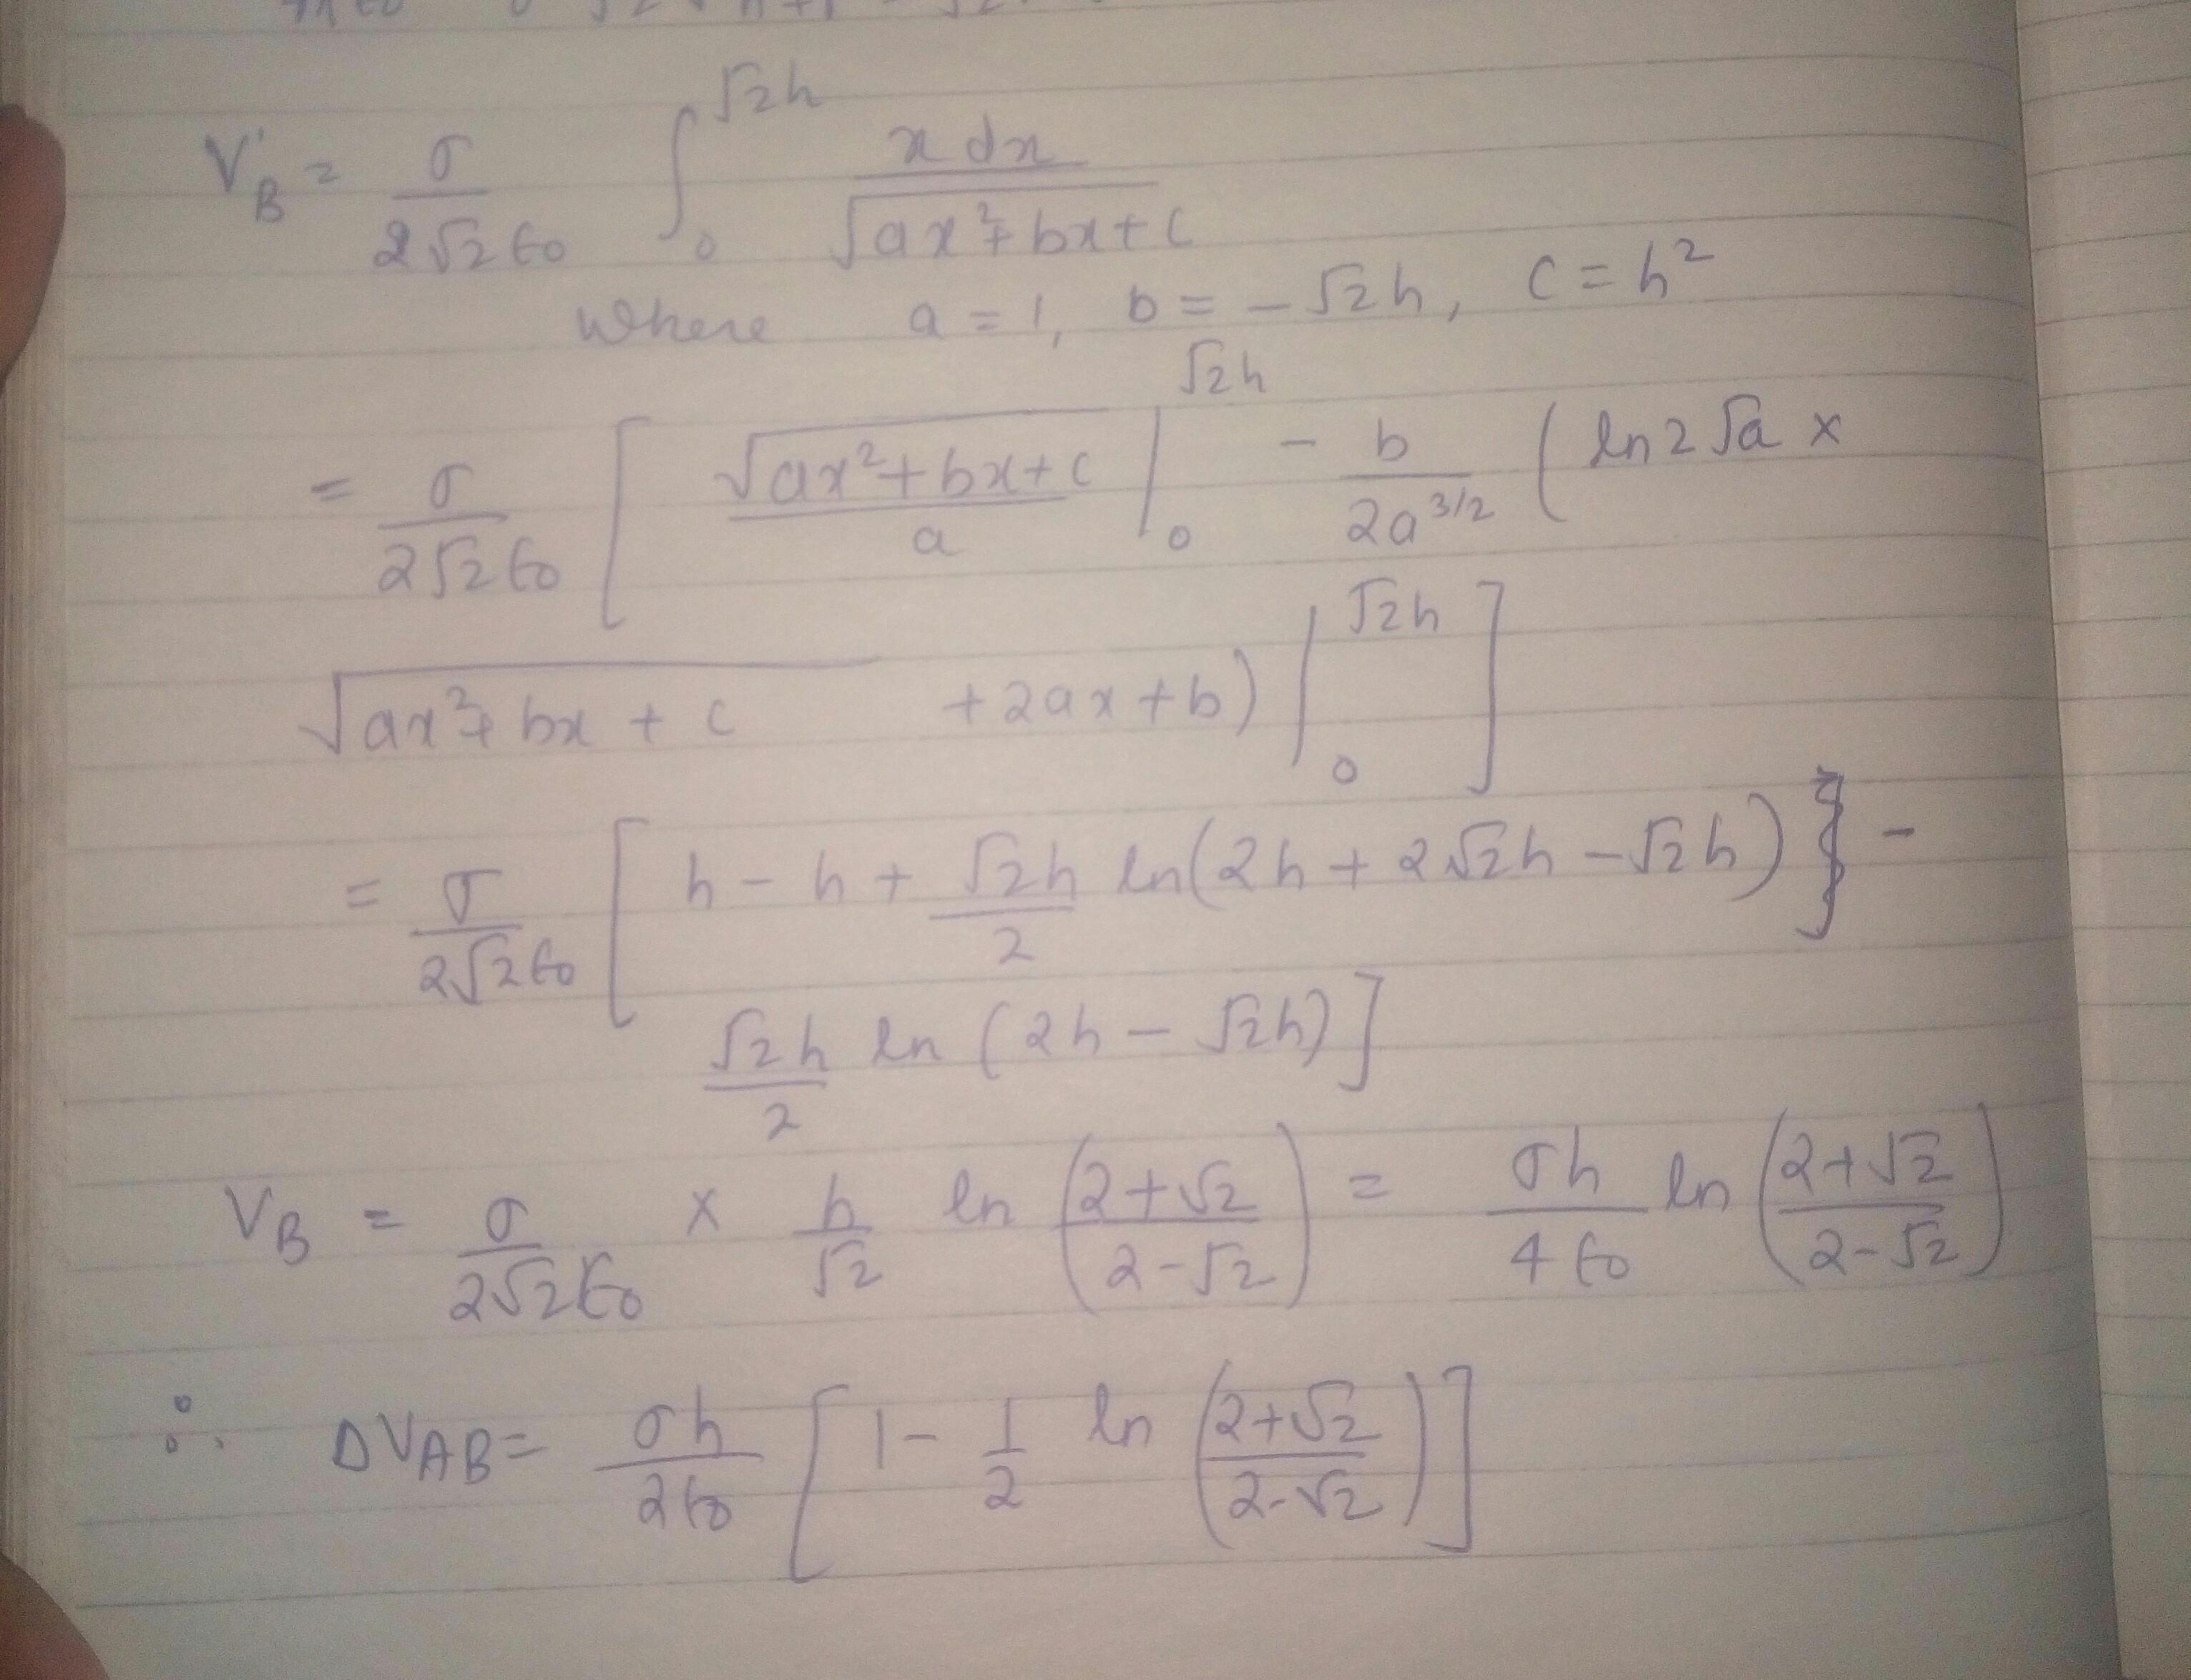 V'B = σ/2√2ε₀ ∫₀^√2h x dx/√ax²+bx+c
where a = 1, b = -√2h, c = h²
= σ/2√2ε₀ [ √ax²+bx+c/a |₀^√2h - b/2a^3/2 ( ln 2√a ×
√ax²+bx+c + 2ax + b) |₀^√2h ]
= σ/2√2ε₀ [ h - h + √2h/2 ln(2h + 2√2h - √2h) -
√2h/2 ln (2h - √2h) ]
VB = σ/2√2ε₀ × h/√2 ln (2+√2/2-√2) = σh/4ε₀ ln (2+√2/2-√2)
∴ ΔVAB = σh/2ε₀ [ 1 - 1/2 ln (2+√2/2-√2) ]